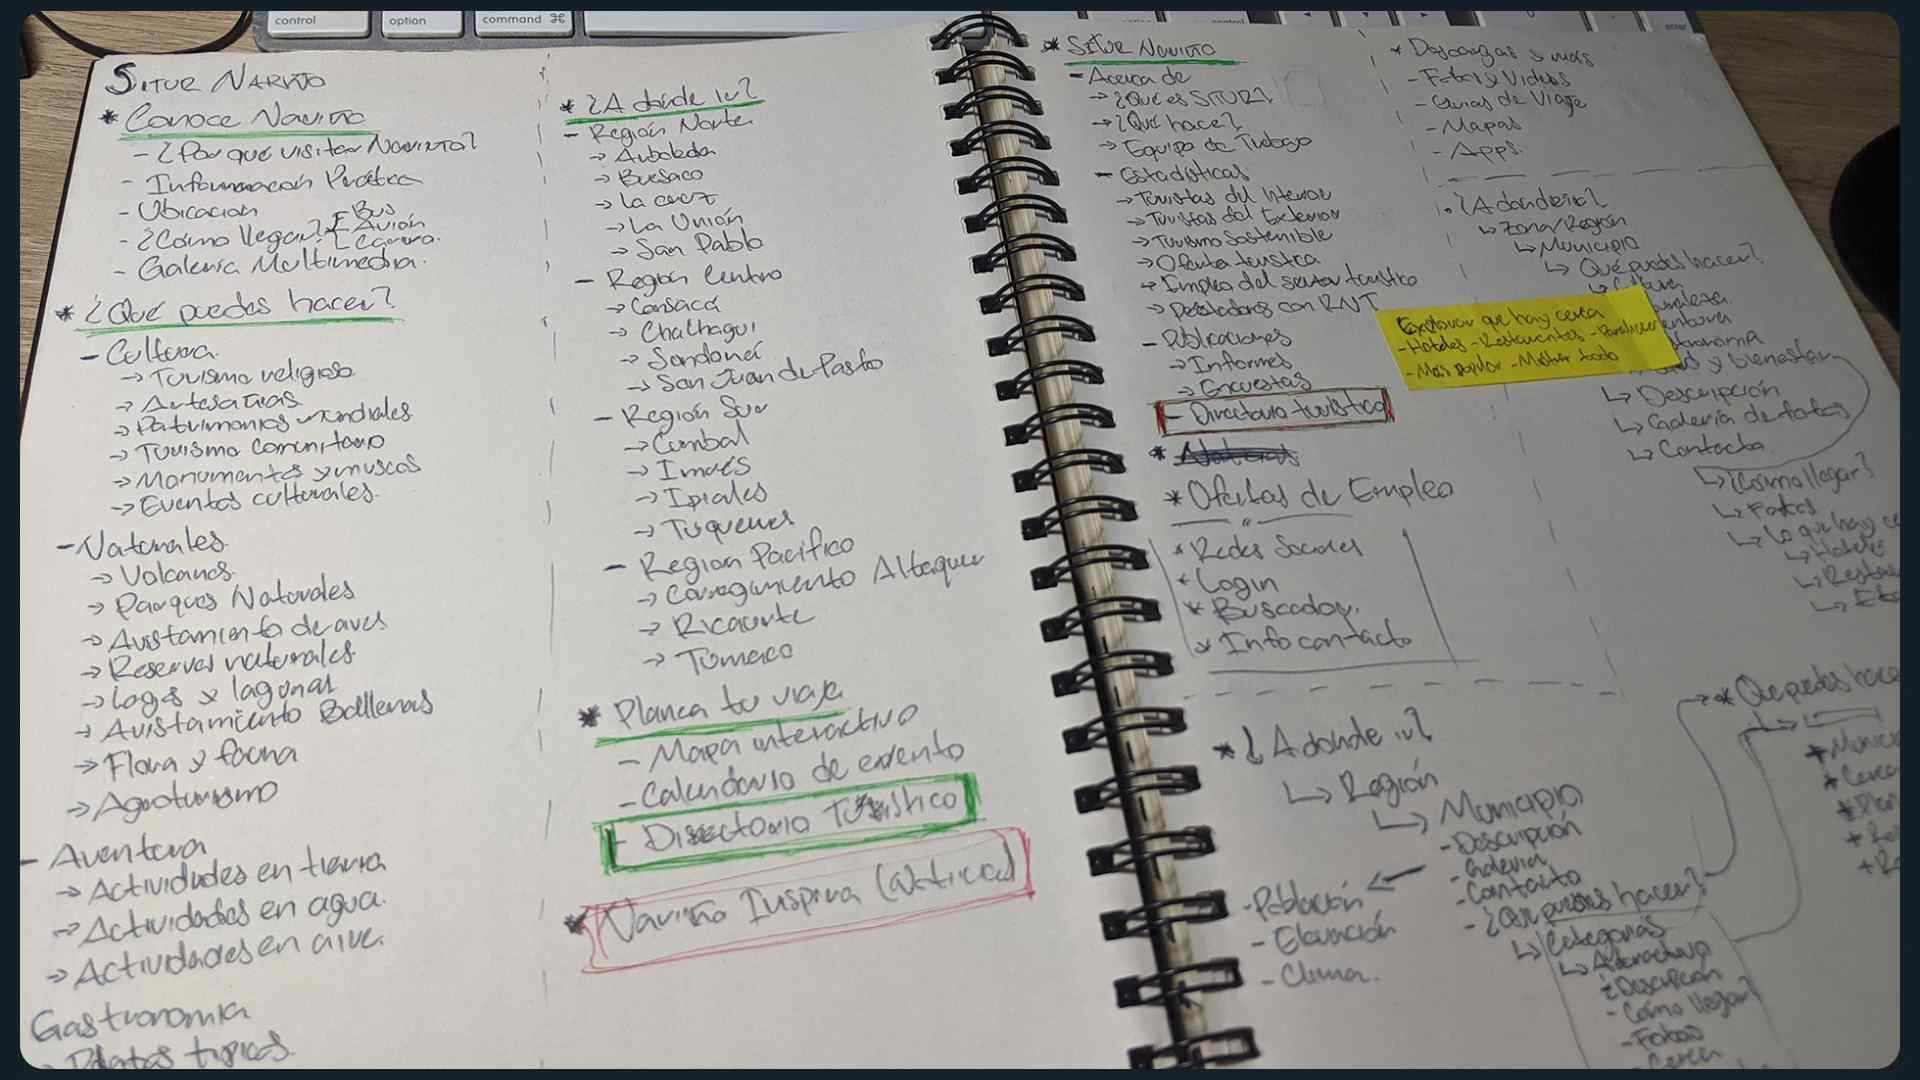 control
option
command ⌘
SITUR NARIÑO
* Conoce Nariño
- ¿Por qué visitar Nariño?
- Información Práctica
- Ubicación
- ¿Cómo llegar?
- Bus
- Avión
- Carro.
- Galería Multimedia.
* ¿Qué puedes hacer?
- Cultura
→ Turismo religioso
→ Artesanías
→ Patrimonios mundiales
→ Turismo comunitario
→ Monumentos y museos
→ Eventos culturales.
- Naturales
→ Volcanes
→ Parques Naturales
→ Avistamiento de aves
→ Reservas naturales
→ Lagos y lagunas
→ Avistamiento Ballenas
→ Flora y fauna
→ Agroturismo
- Aventura
→ Actividades en tierra
→ Actividades en agua.
→ Actividades en aire.
Gastronomía
→ Platos típicos
* ¿A dónde ir?
- Región Norte
→ Arboleda
→ Buesaco
→ La cruz
→ La Unión
→ San Pablo
- Región Centro
→ Consacá
→ Chachagui
→ Sandoná
→ San Juan de Pasto
- Región Sur
→ Cumbal
→ Imués
→ Ipiales
→ Túquerres
- Región Pacífico
→ Corregimiento Altaquer
→ Ricaurte
→ Tumaco
* Planea tu viaje
- Mapa interactivo
- Calendario de evento
- Directorio Turístico
* Nariño Inspira
* SITUR Nariño
- Acerca de
→ ¿Qué es SITUR?
→ ¿Qué hace?
→ Equipo de Trabajo
- Estadísticas
→ Turistas del Interior
→ Turistas del Exterior
→ Turismo Sostenible
→ Oferta turística
→ Empleo del sector turístico
→ Prestadores con RNT
- Publicaciones
→ Informes
→ Encuestas
- Directorio turístico
* Ofertas de Empleo
* Redes Sociales
* Login
* Buscador.
* Info contacto
* Descargas y más
- Fotos y Videos
- Guias de Viaje
- Mapas
- Apps.
¿A donde ir?
↳ Zona/Región
↳ Municipio
↳ Qué puedes hacer?
↳ Cultura
Explorar que hay cerca
- Hoteles - Restaurantes -
- Más popular - Mostrar todo
y bienestar
↳ Descripción
↳ Galería de fotos
↳ Contacto
↳ ¿Cómo llegar?
↳ Fotos
↳ Lo que hay ce
↳ Hoteles
↳ Resta
* ¿A dónde ir?
↳ Región
↳ Municipio
- Descripción
- Galería
- Contacto
- ¿Qué puedes hacer?
- Población
- Elevación
- Clima.
↳ Categorías
↳ Atractivo
- Descripción
- Cómo llegar?
- Fotos
- Cerca
* Que puedes hace
* Munici
* Cerca